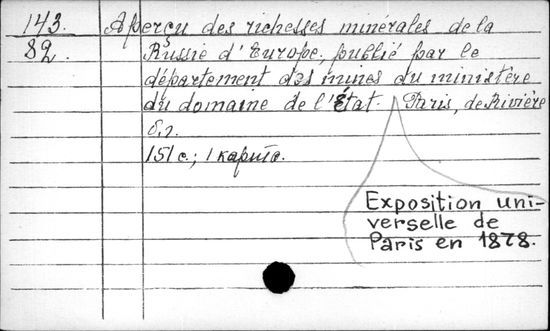 143.
82.
Aperçu des richesses minérales de la
Russie d'Europe, publié par le
département des mines du ministère
du domaine de l'État. Paris, de Rivière
б.г.
151 с.; 1 карта.
Exposition uni-
verselle de
Paris en 1878.